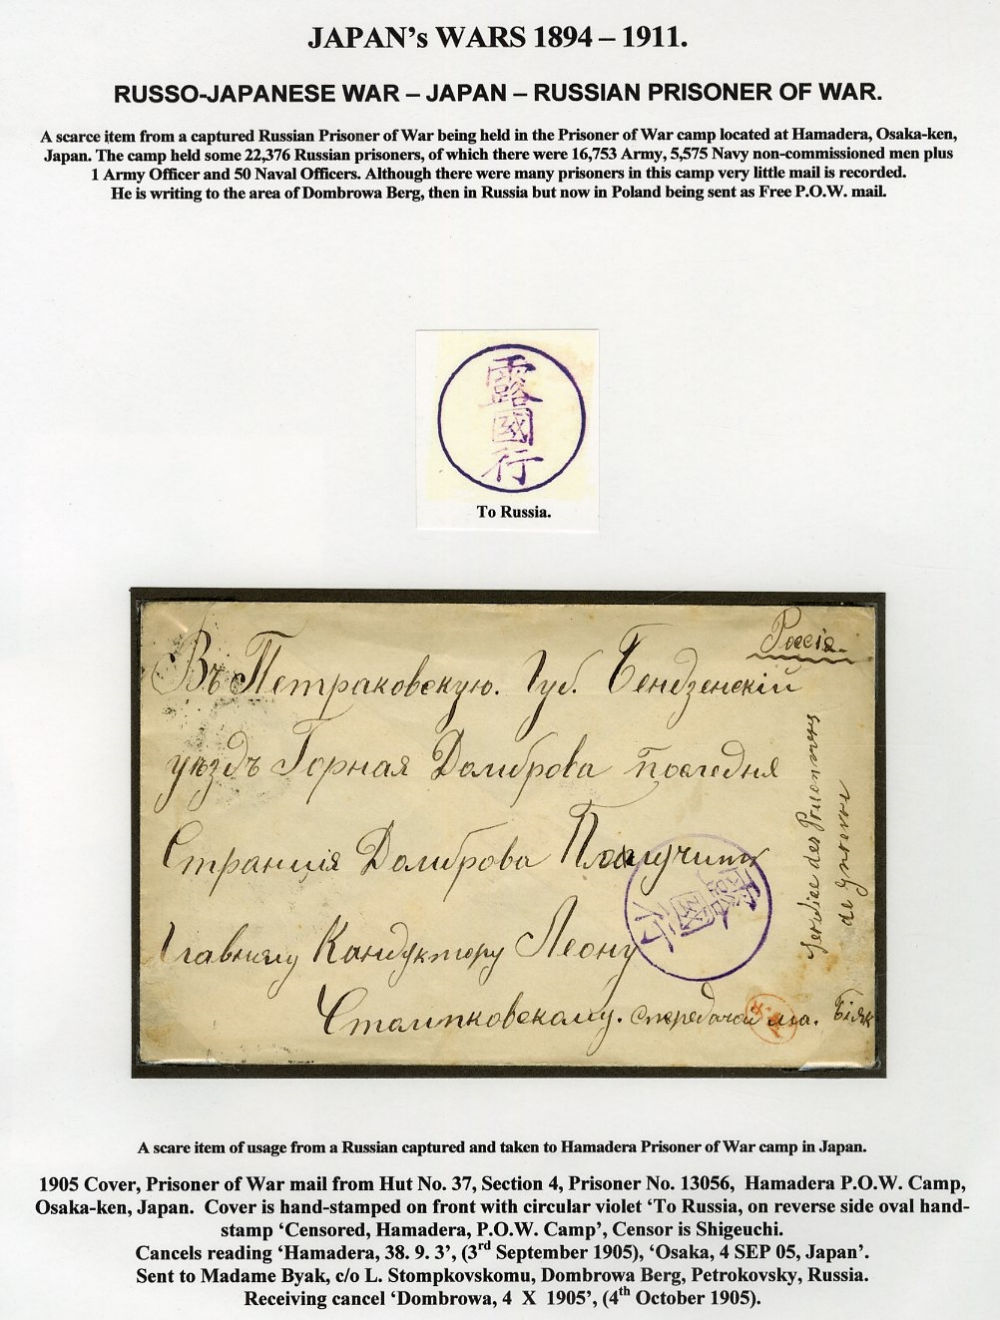 JAPAN's WARS 1894 – 1911.
RUSSO-JAPANESE WAR – JAPAN – RUSSIAN PRISONER OF WAR.
A scarce item from a captured Russian Prisoner of War being held in the Prisoner of War camp located at Hamadera, Osaka-ken,
Japan. The camp held some 22,376 Russian prisoners, of which there were 16,753 Army, 5,575 Navy non-commissioned men plus
1 Army Officer and 50 Naval Officers. Although there were many prisoners in this camp very little mail is recorded.
He is writing to the area of Dombrowa Berg, then in Russia but now in Poland being sent as Free P.O.W. mail.
露國行
To Russia.
Россiя.
Въ Петраковскую. Губ. Бендзенскiй
уѣздъ Горная Домброва последня
Странцiя Домброва Палучить
Главному Кандуктору Леону
Стомпковскому.
Бiяк
Service des Prisonniers
de guerre
露國行
A scare item of usage from a Russian captured and taken to Hamadera Prisoner of War camp in Japan.
1905 Cover, Prisoner of War mail from Hut No. 37, Section 4, Prisoner No. 13056, Hamadera P.O.W. Camp,
Osaka-ken, Japan. Cover is hand-stamped on front with circular violet ‘To Russia, on reverse side oval hand-
stamp ‘Censored, Hamadera, P.O.W. Camp’, Censor is Shigeuchi.
Cancels reading ‘Hamadera, 38. 9. 3’, (3rd September 1905), ‘Osaka, 4 SEP 05, Japan’.
Sent to Madame Byak, c/o L. Stompkovskomu, Dombrowa Berg, Petrokovsky, Russia.
Receiving cancel ‘Dombrowa, 4 X 1905’, (4th October 1905).